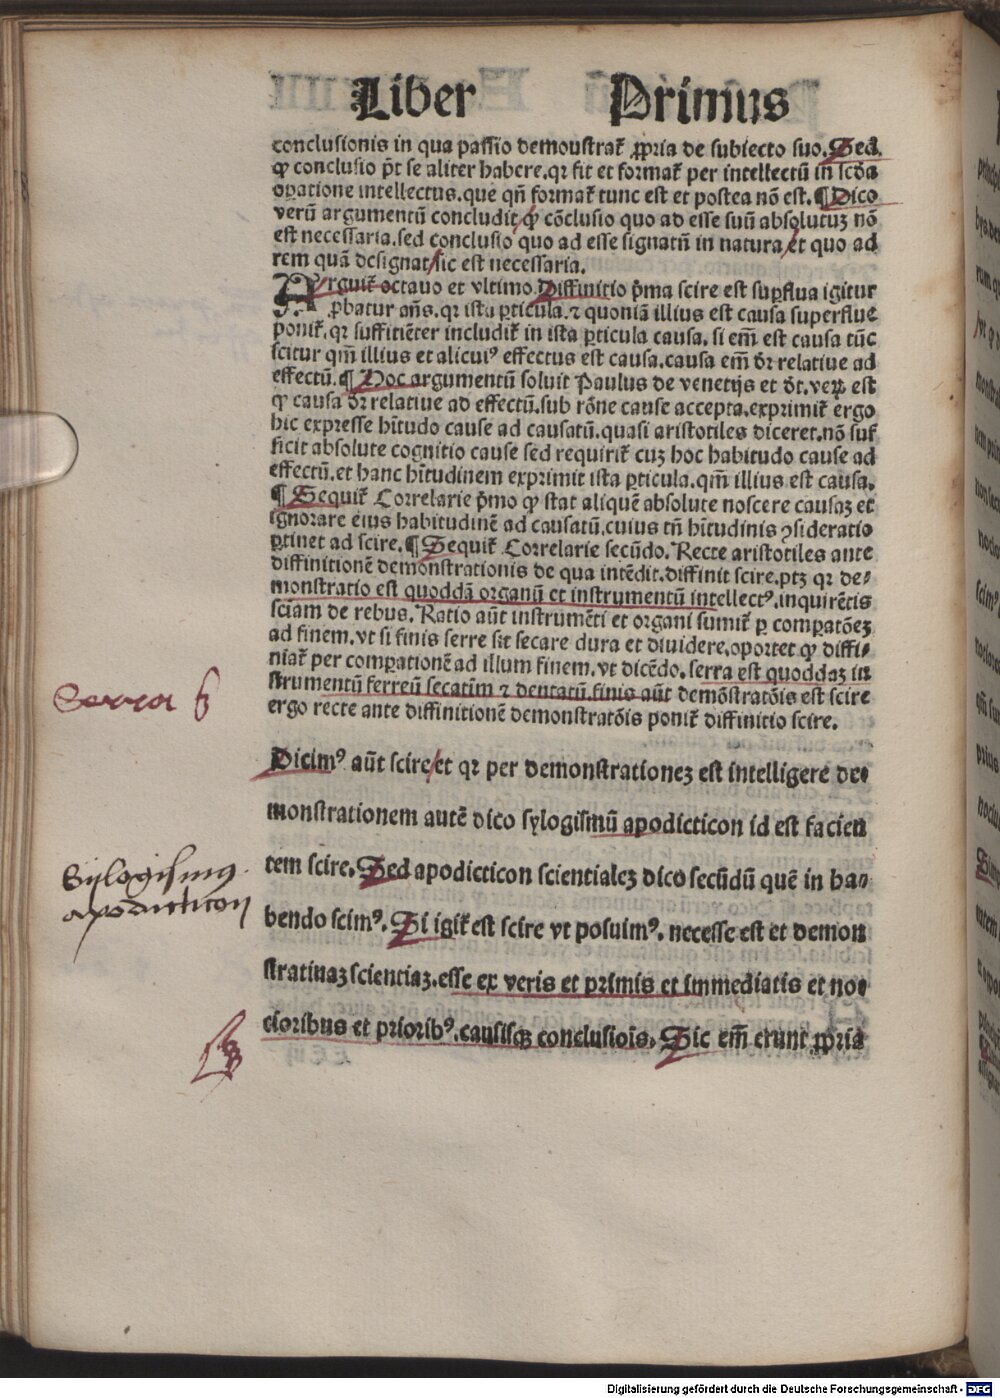 Liber Primus
conclusionis in qua passio demonstrat᷑ ꝓpria de subiecto suo. Sed
ꝙ conclusio p̄t se aliter habere. qꝛ fit et format᷑ per intellectū in scd̄a
opatione intellectus. que qn̄ format᷑ tunc est et postea nō est. ¶ Dico
verū argumentū concludit / ꝙ cōclusio quo ad esse suū absolutuꝫ nō
est necessaria. sed conclusio quo ad esse signatū in natura / et quo ad
rem quā designat / sic est necessaria.
Arguit᷑ octauo et vltimo. Diffinitio p̄ma scire est suꝑflua igitur
ꝓbatur an̄s. qꝛ ista ꝑticula. ⁊ quoniā illius est causa superflue
ponit᷑. qꝛ suffitiēter includit᷑ in ista ꝑticula causa. si em̄ est causa tūc
scitur qm̄ illius et alicuiꝰ effectus est causa. causa em̄ dr̄ relatiue ad
effectū. ¶ Hoc argumentū soluit Paulus de venetijs et dt̄. veꝝ est
ꝙ causa dr̄ relatiue ad effectū. sub rōne cause accepta. exprimit᷑ ergo
hic expresse hitudo cause ad causatū. quasi aristotiles diceret. nō suf
ficit absolute cognitio cause sed requirit᷑ cuꝫ hoc habitudo cause ad
effectū. et hanc hītudinem exprimit ista ꝑticula. qm̄ illius est causa.
¶ Sequit᷑ Correlarie p̄mo ꝙ stat aliquē absolute noscere causaꝫ et
ignorare eius habitudinē ad causatū. cuius tn̄ hītudinis ꝯsideratio
ꝑtinet ad scire. ¶ Sequit᷑ Correlarie secūdo. Recte aristotiles ante
diffinitionē demonstrationis de qua intēdit. diffinit scire. ptꝫ qꝛ de⸗
monstratio est quoddā organū et instrumentū intellectꝰ. inquirētis
sciam de rebus. Ratio aūt instrumēti et organi sumit᷑ ꝑ compatōeꝫ
ad finem. vt si finis serre sit secare dura et diuidere. oportet ꝙ diffi⸗
niat᷑ per compationē ad illum finem. vt dicēdo. serra est quoddaꝫ in
strumentū ferreū secatim ⁊ dentatū. finis aūt demōstratōis est scire
ergo recte ante diffinitionē demonstratōis ponit᷑ diffinitio scire.
Serra
Dicimꝰ aūt scire / et qꝛ per demonstrationeꝫ est intelligere de⸗
monstrationem autē dico sylogismū apodicticon id est facien
tem scire. Sed apodicticon scientialeꝫ dico secūdū quē in ha⸗
Syilogismus
apodicticon
bendo scimꝰ. Si igit᷑ est scire vt posuimꝰ. necesse est et demon
stratiuaꝫ scientiaꝫ. esse ex veris et primis et immediatis et no⸗
cioribus et prioribꝰ. causisqꝫ conclusiois. Sic em̄ erunt ꝓpria
Digitalisierung gefördert durch die Deutsche Forschungsgemeinschaft - DFG